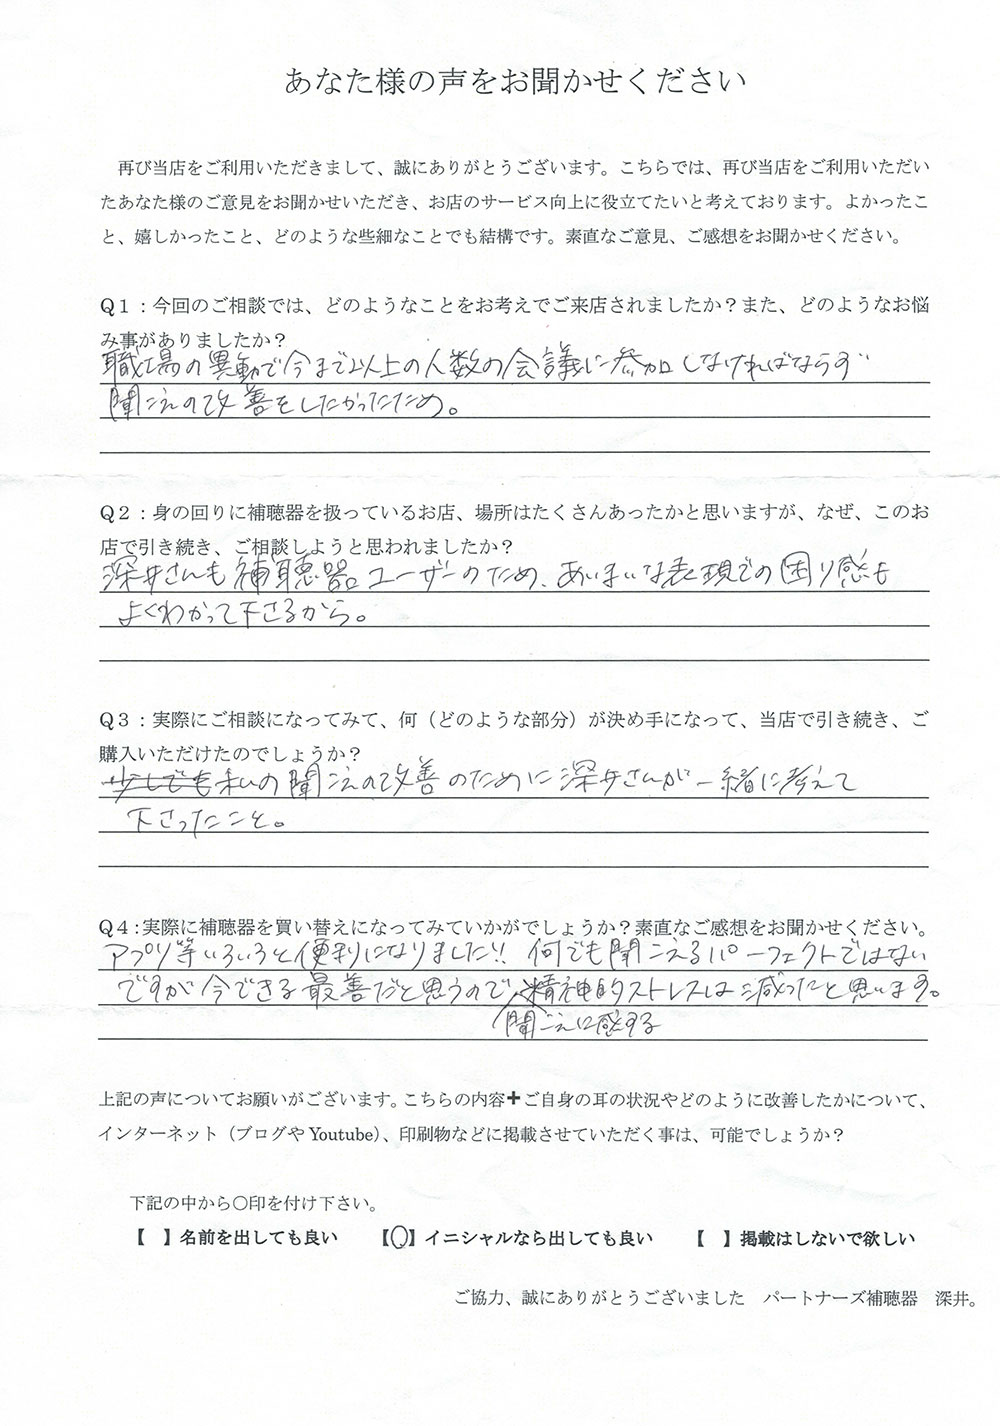 あなた様の声をお聞かせください
再び当店をご利用いただきまして、誠にありがとうございます。こちらでは、再び当店をご利用いただい
たあなた様のご意見をお聞かせいただき、お店のサービス向上に役立てたいと考えております。よかったこ
と、嬉しかったこと、どのような些細なことでも結構です。素直なご意見、ご感想をお聞かせください。
Q1：今回のご相談では、どのようなことをお考えでご来店されましたか？また、どのようなお悩
み事がありましたか？
職場の異動で今まで以上の人数の会議に参加しなければならず
聞こえの改善をしたかったため。
Q2：身の回りに補聴器を扱っているお店、場所はたくさんあったかと思いますが、なぜ、このお
店で引き続き、ご相談しようと思われましたか？
深井さんも補聴器ユーザーのため、あいまいな表現での困り感も
よくわかって下さるから。
Q3：実際にご相談になってみて、何（どのような部分）が決め手になって、当店で引き続き、ご
購入いただけたのでしょうか？
少しでも私の聞こえの改善のために深井さんが一緒に考えて
下さったこと。
Q4：実際に補聴器を買い替えになってみていかがでしょうか？素直なご感想をお聞かせください。
アプリ等いろいろと便利になりました!! 何でも聞こえるパーフェクトではない
ですが今できる最善だと思うので、精神的ストレスは減ったと思います。
聞こえに感する
上記の声についてお願いがございます。こちらの内容+ご自身の耳の状況やどのように改善したかについて、
インターネット（ブログやYoutube）、印刷物などに掲載させていただく事は、可能でしょうか？
下記の中から〇印を付け下さい。
【　】名前を出しても良い　【〇】イニシャルなら出しても良い　【　】掲載はしないで欲しい
ご協力、誠にありがとうございました　パートナーズ補聴器　深井。